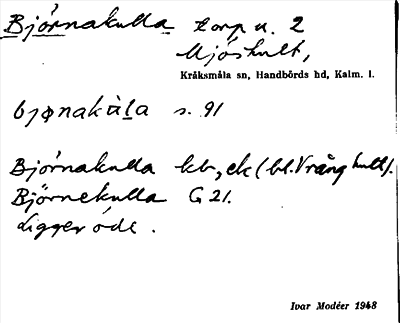 Björnakulla torp u. 2
Mjöshult,
Kråksmåla sn, Handbörds hd, Kalm. l.
bjønakùla s. 91
Björnakulla kb, ek (bl. Vrånghult).
Björnekulla G 21.
Ligger öde.
Ivar Modéer 1948